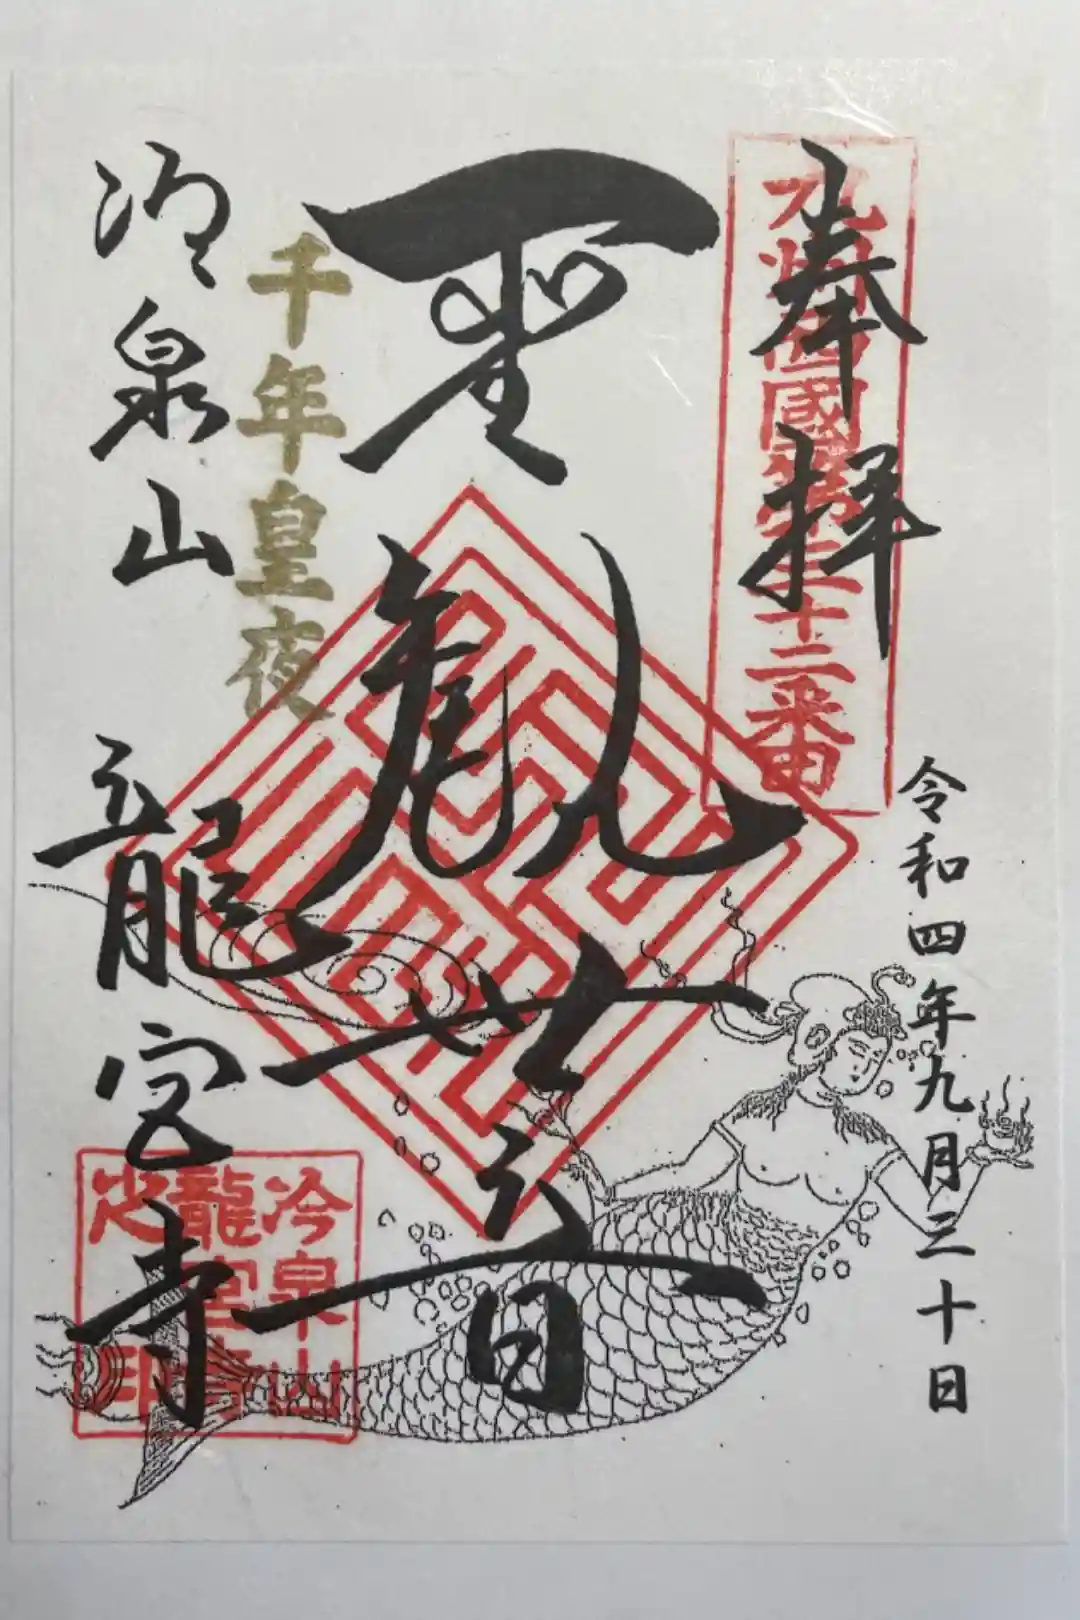 奉拝
九州西國第三十二番
令和四年九月三十日
聖観世音
千年皇夜
冷泉山 龍宮寺
冷泉山
龍宮寺
之印